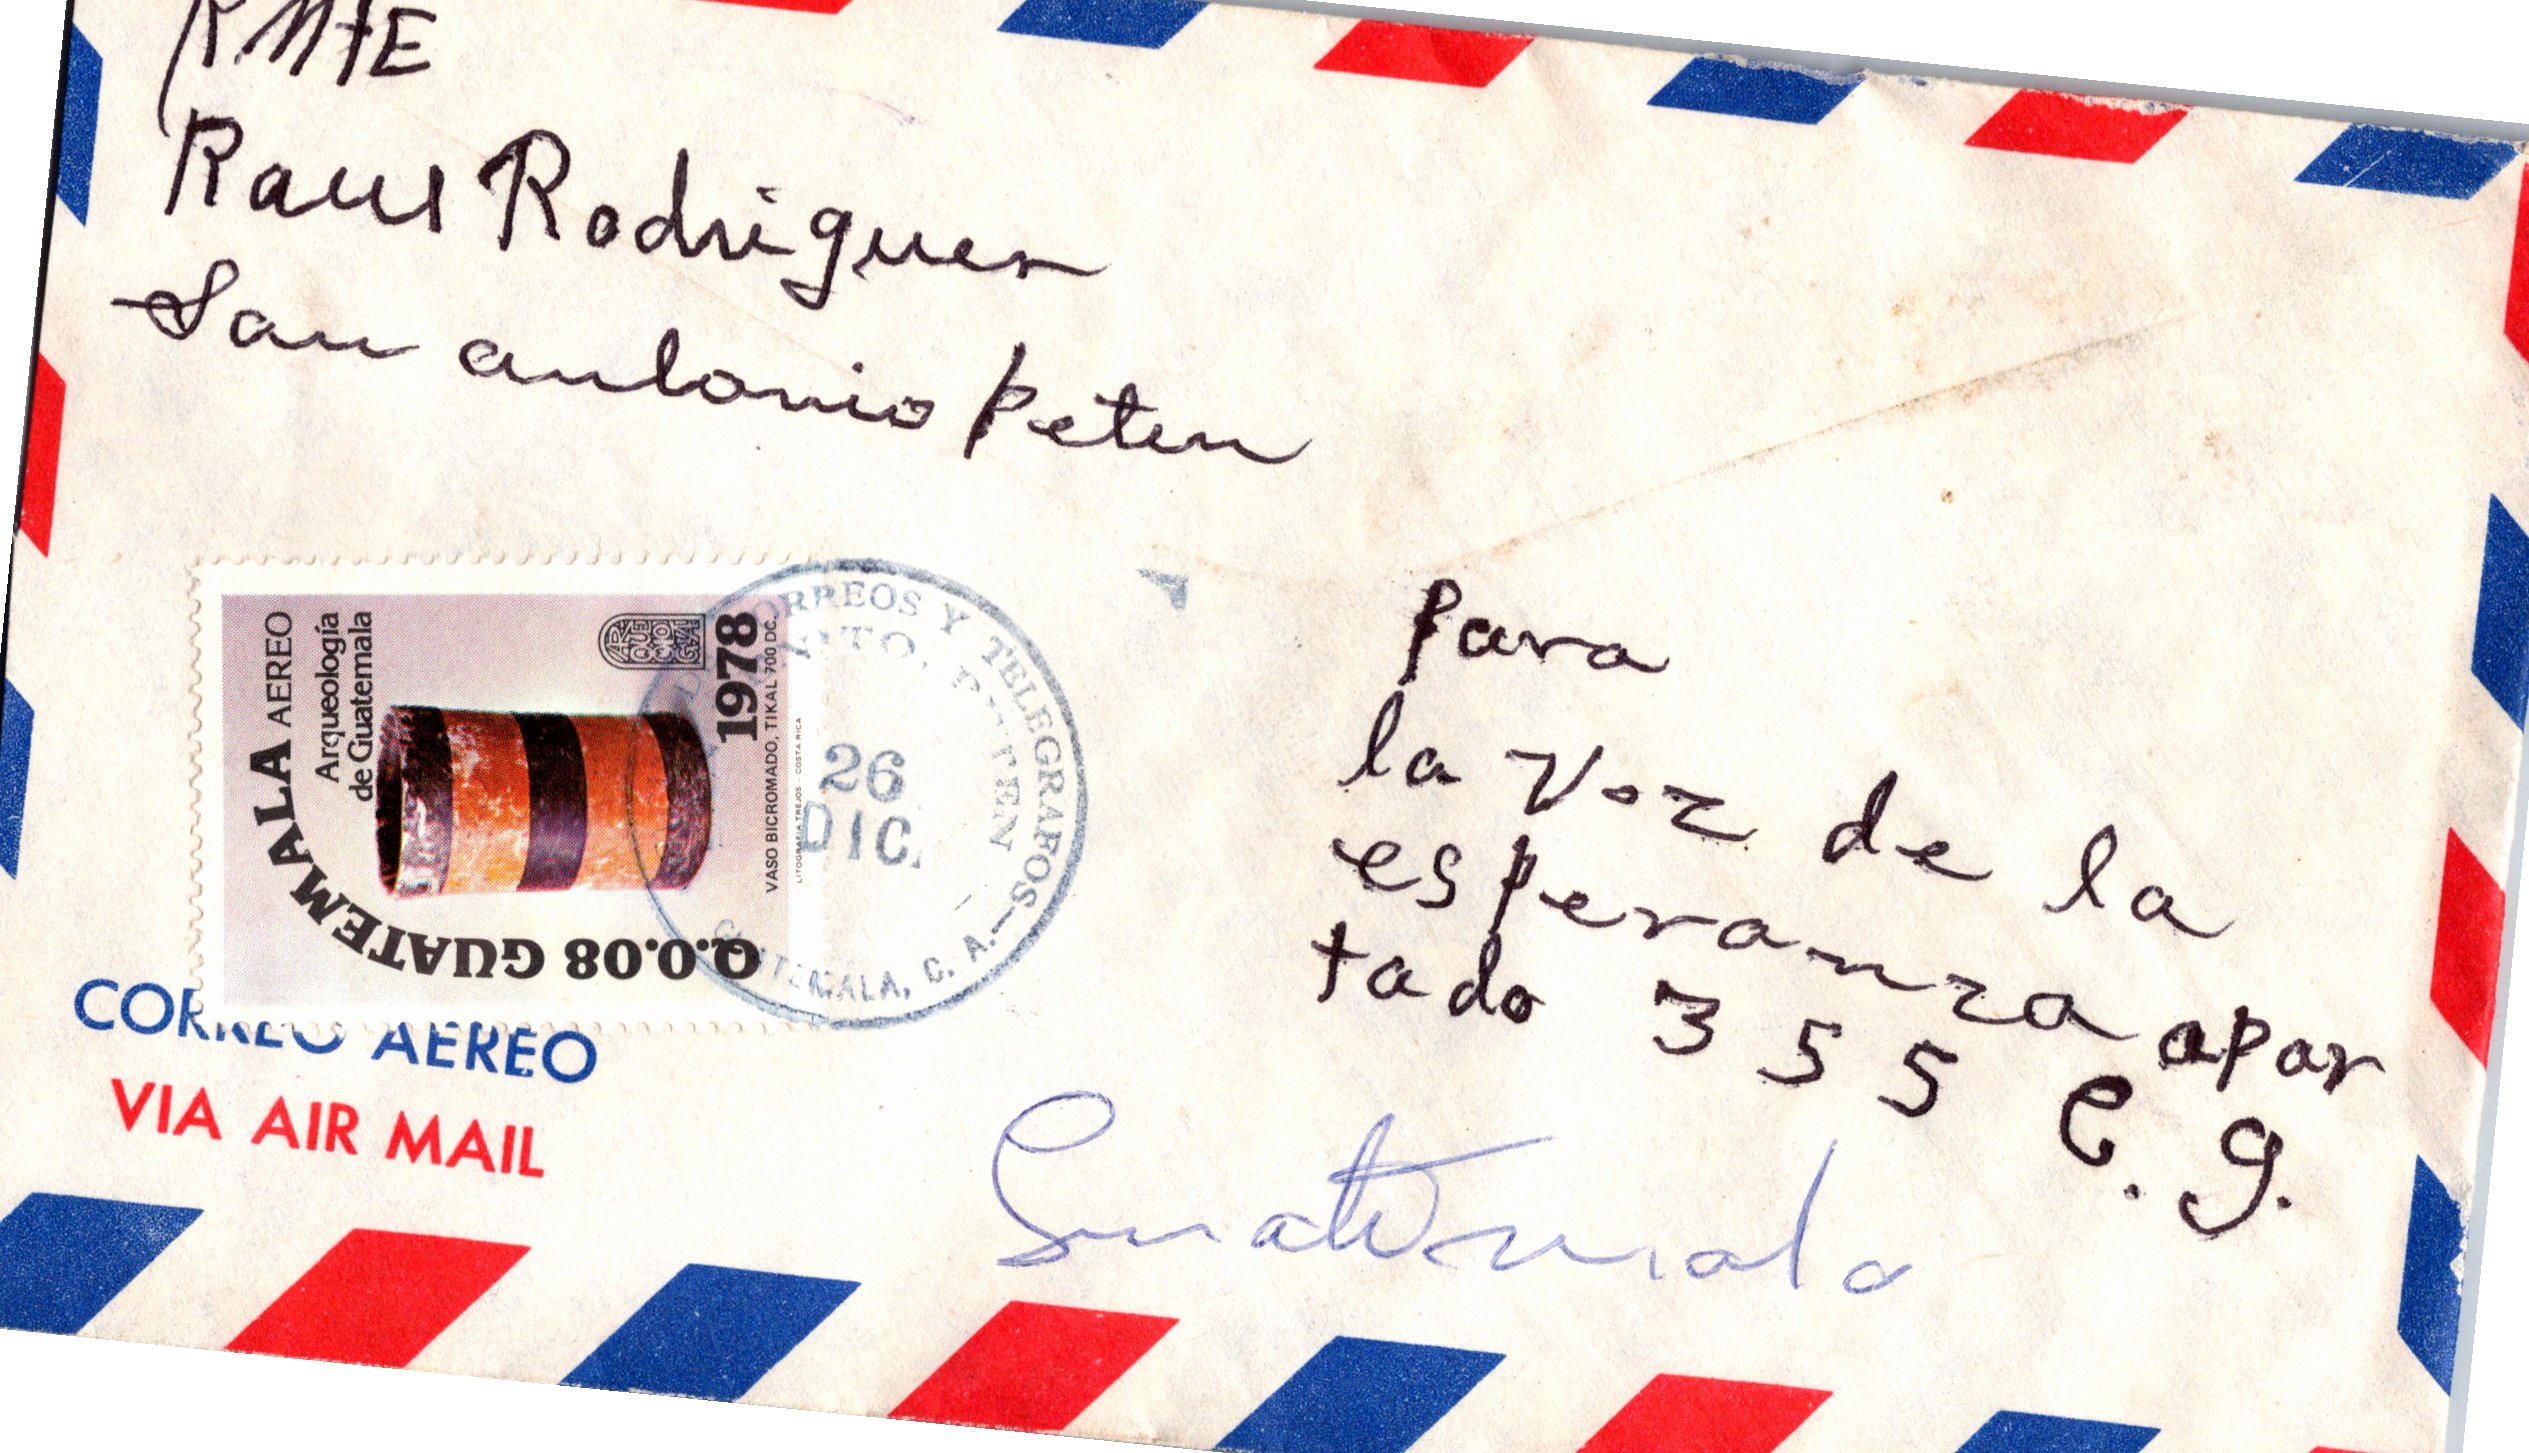 RMTE
Raul Rodriguez
San antonio peten
GUATEMALA AEREO
Arqueología
de Guatemala
Q.0.08
1978
VASO BICROMADO, TIKAL 700 DC.
LITOGRAFIA TREJOS - COSTA RICA
CORREOS Y TELEGRAFOS
26
DIC.
GUATEMALA, C. A.
para
la voz de la
esperanza apar
tado 355 C. g.
Guatemala
CORREO AEREO
VIA AIR MAIL